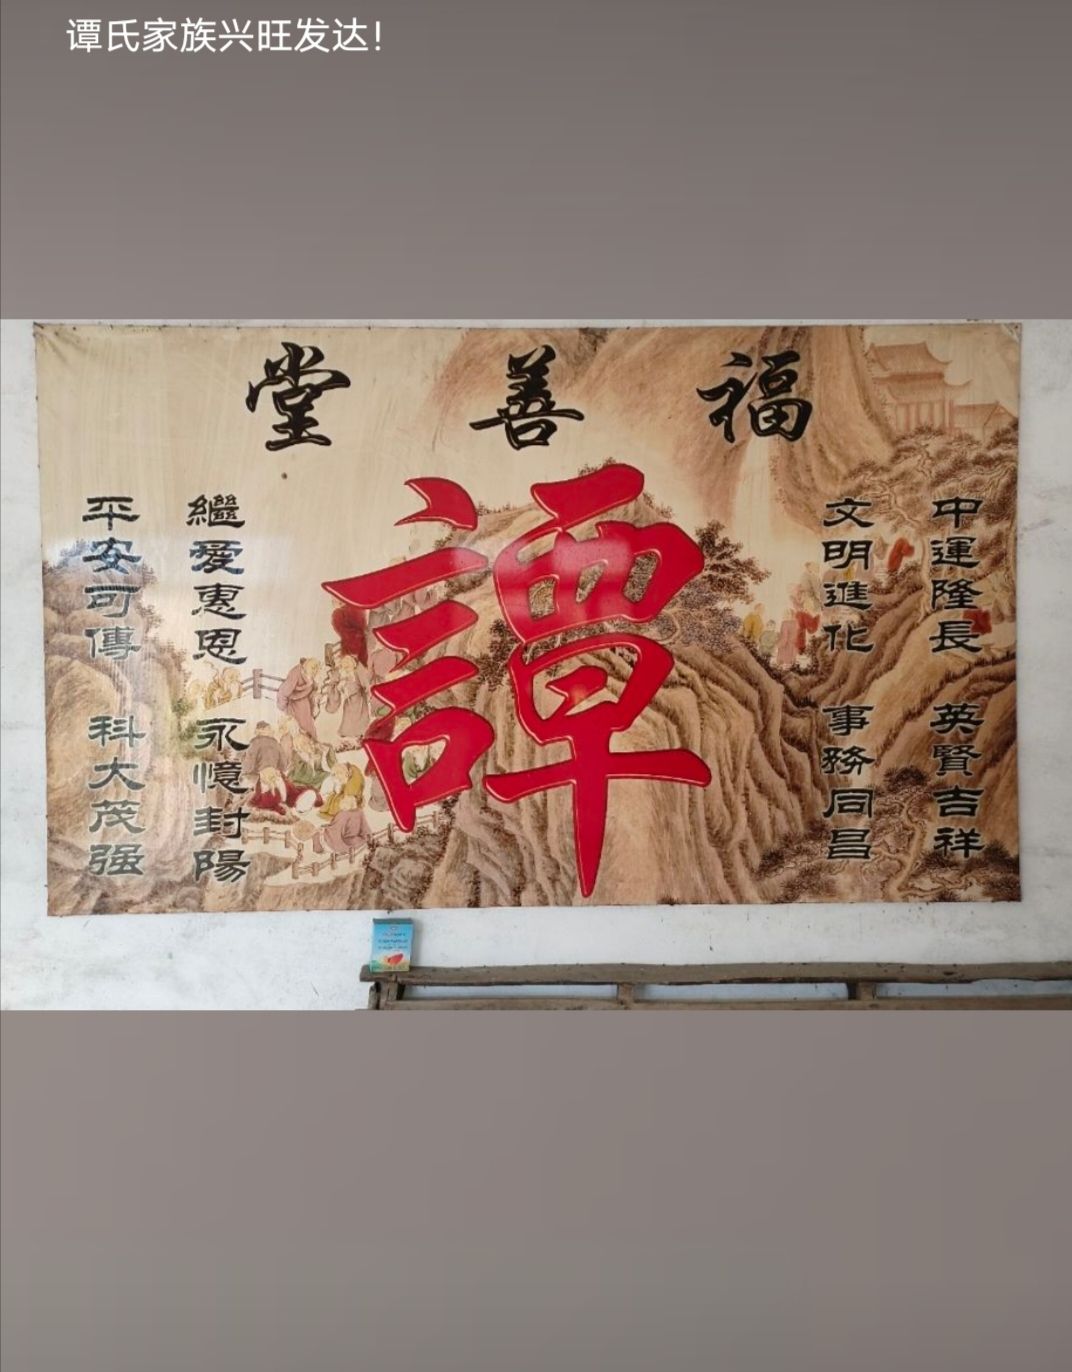 谭氏家族兴旺发达！
福善堂
譚
中運隆長 英賢吉祥
文明進化 事務同昌
繼愛惠恩 永憶封陽
平安可傳 科大茂强